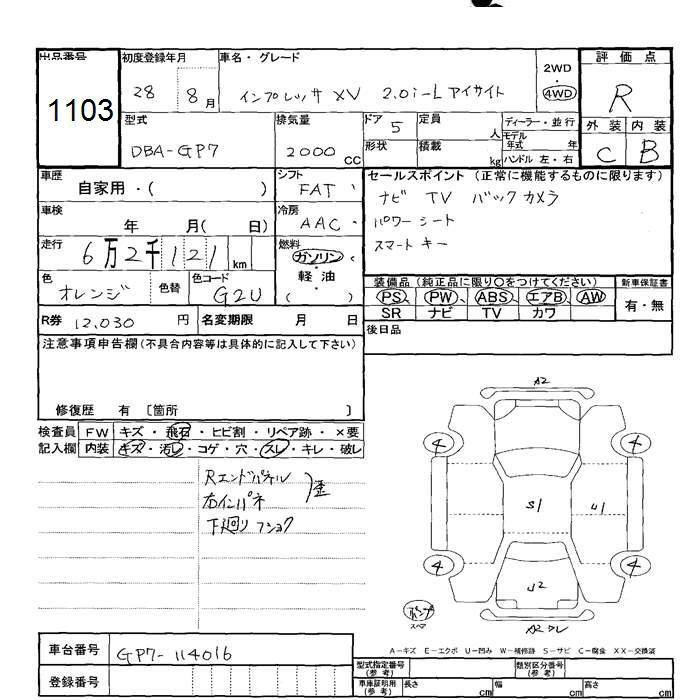 出品番号
1103
初度登録年月
28 8月
車名・グレード
インプレッサ XV 2.0i-L アイサイト
2WD
4WD
評価点
R
外装 内装
C B
型式
DBA-GP7
排気量
2000 CC
ドア 5
形状
定員 人
積載 kg
ディーラー・並行
モデル年式 年
ハンドル 左・右
車歴
自家用・( )
シフト
FAT
セールスポイント (正常に機能するものに限ります)
ナビ TV バックカメラ
パワーシート
スマートキー
車検
年 月( 日)
冷房
AAC
走行
6万2千121 km
燃料
ガソリン
軽・油
( )
色
オレンジ
色替
色コード
G2U
装備品 (純正品に限り○をつけてください)
PS、PW、ABS、エアB、AW
SR ナビ TV カワ
新車保証書
有・無
R券 12,030 円
名変期限 月 日
後日品
注意事項申告欄(不具合内容等は具体的に記入して下さい)
修復歴 有 〔箇所 〕
検査員記入欄
FW キズ・飛石・ヒビ割・リペア跡・×要
内装 キズ・汚レ・コゲ・穴・スレ・キレ・破レ
Rエンドパネル
右インパネ
歪
下廻り フショク
A2
4 4
S1 U1
4 4
U2
パンク
スペア
A2 クレ
A-キズ E-エクボ U-凹み W-補修跡 S-サビ C-腐食 XX-交換済
車台番号 GP7-114016
登録番号
型式指定番号(参考)
類別区分番号(参考)
車庫証明用(参考) 長さ cm 幅 cm 高さ cm